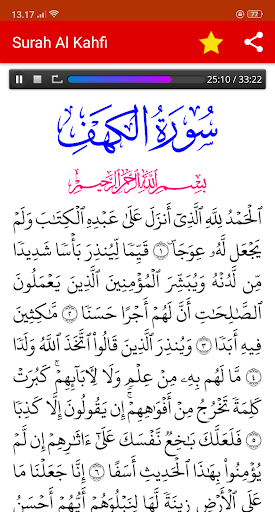 13.17
Surah Al Kahfi
25:10 / 33:22
سُورَةُ الْكَهْفِ
بِسْمِ اللَّهِ الرَّحْمَٰنِ الرَّحِيمِ
الْحَمْدُ لِلَّهِ الَّذِي أَنْزَلَ عَلَىٰ عَبْدِهِ الْكِتَابَ وَلَمْ
يَجْعَلْ لَهُ عِوَجًا ۜ ﴿١﴾ قَيِّمًا لِيُنْذِرَ بَأْسًا شَدِيدًا
مِنْ لَدُنْهُ وَيُبَشِّرَ الْمُؤْمِنِينَ الَّذِينَ يَعْمَلُونَ
الصَّالِحَاتِ أَنَّ لَهُمْ أَجْرًا حَسَنًا ﴿٢﴾ مَاكِثِينَ
فِيهِ أَبَدًا ﴿٣﴾ وَيُنْذِرَ الَّذِينَ قَالُوا اتَّخَذَ اللَّهُ وَلَدًا
﴿٤﴾ مَا لَهُمْ بِهِ مِنْ عِلْمٍ وَلَا لِآبَائِهِمْ ۚ كَبُرَتْ
كَلِمَةً تَخْرُجُ مِنْ أَفْوَاهِهِمْ ۚ إِنْ يَقُولُونَ إِلَّا كَذِبًا
﴿٥﴾ فَلَعَلَّكَ بَاخِعٌ نَفْسَكَ عَلَىٰ آثَارِهِمْ إِنْ لَمْ
يُؤْمِنُوا بِهَٰذَا الْحَدِيثِ أَسَفًا ﴿٦﴾ إِنَّا جَعَلْنَا مَا
عَلَى الْأَرْضِ زِينَةً لَهَا لِنَبْلُوَهُمْ أَيُّهُمْ أَحْسَنُ